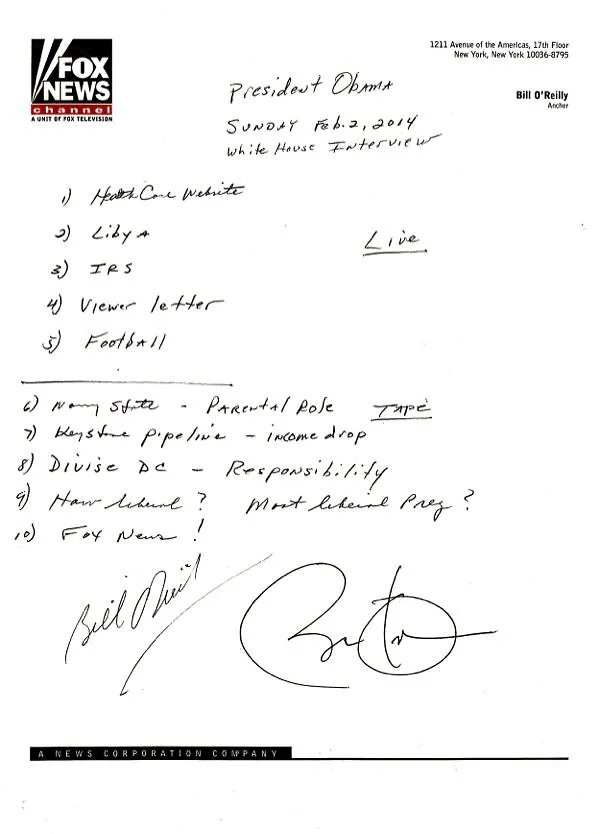 FOX
NEWS
channel
A UNIT OF FOX TELEVISION
1211 Avenue of the Americas, 17th Floor
New York, New York 10036-8795
Bill O'Reilly
Anchor
President Obama
Sunday Feb. 2, 2014
White House Interview
1) Health Care Website
2) Libya
Live
3) IRS
4) Viewer letter
5) Football
6) Nanny State - Parental Role TAPE
7) Keystone pipeline - income drop
8) Divise DC - Responsibility
9) How liberal? Most liberal Prez?
10) Fox News!
A NEWS CORPORATION COMPANY